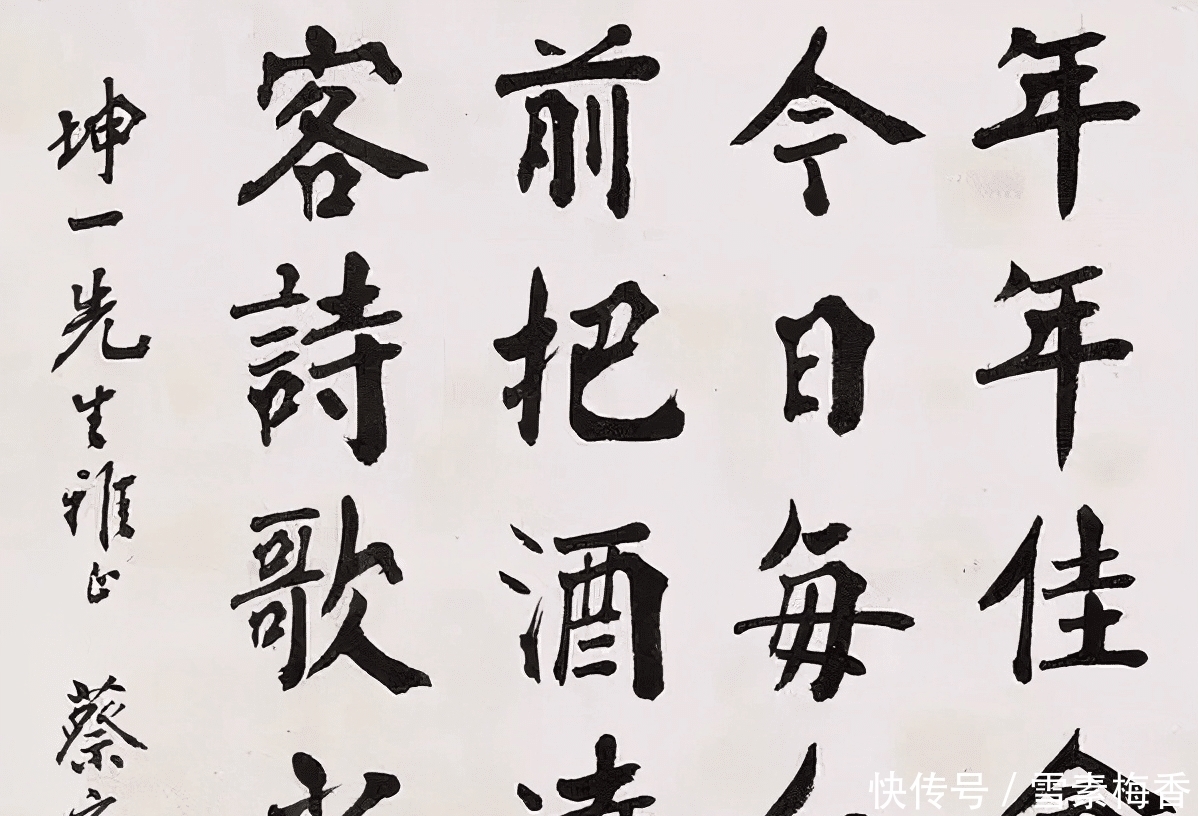 年年佳會
今日每
前把酒
客詩歌
坤一先生雅正 蔡
快传号 / 雪素梅香